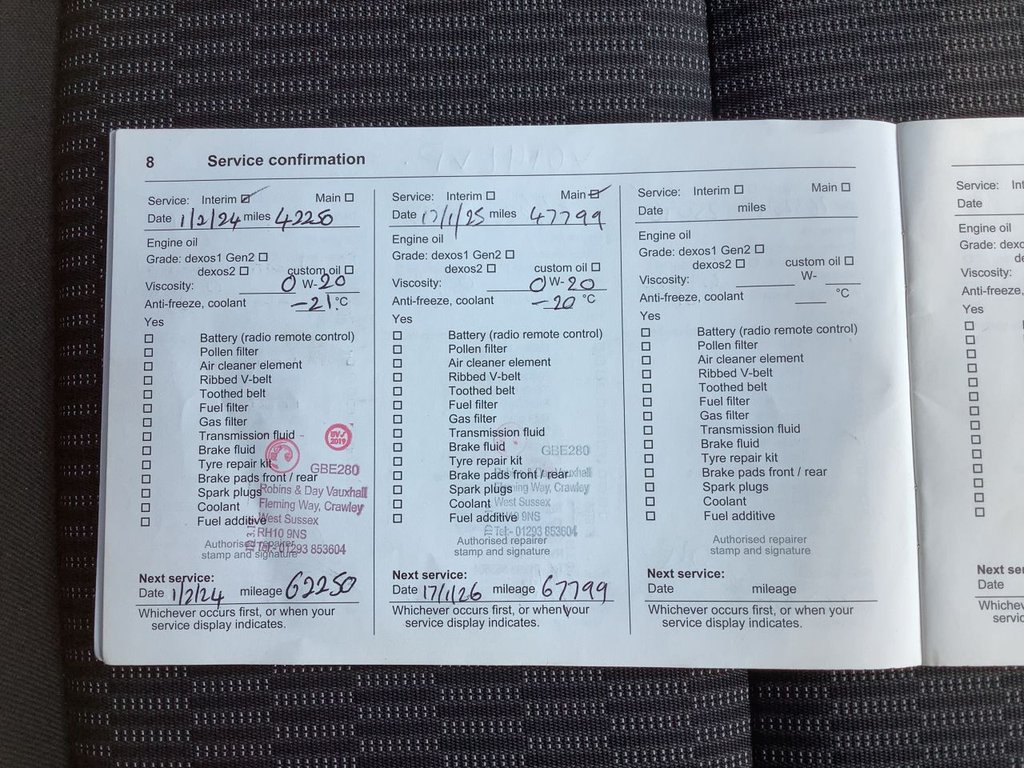 8 Service confirmation
Service: Interim Main
Date 1/2/24 miles 42250
Engine oil
Grade: dexos1 Gen2
dexos2 custom oil
Viscosity: 0 W-20
Anti-freeze, coolant -21 °C
Yes
Battery (radio remote control)
Pollen filter
Air cleaner element
Ribbed V-belt
Toothed belt
Fuel filter
Gas filter
Transmission fluid
Brake fluid
Tyre repair kit
Brake pads front / rear
Spark plugs
Coolant
Fuel additive
2019
GBE280
Robins & Day Vauxhall
Fleming Way, Crawley
West Sussex
RH10 9NS
Tel:- 01293 853604
Authorised repairer
stamp and signature
Next service:
Date 1/2/24 mileage 62250
Whichever occurs first, or when your
service display indicates.
Service: Interim Main
Date 17/1/25 miles 47799
Engine oil
Grade: dexos1 Gen2
dexos2 custom oil
Viscosity: 0 W-20
Anti-freeze, coolant -20 °C
Yes
Battery (radio remote control)
Pollen filter
Air cleaner element
Ribbed V-belt
Toothed belt
Fuel filter
Gas filter
Transmission fluid
Brake fluid
Tyre repair kit
Brake pads front / rear
Spark plugs
Coolant
Fuel additive
GBE280
Robins & Day Vauxhall
Fleming Way, Crawley
West Sussex
9NS
Tel:- 01293 853604
Authorised repairer
stamp and signature
Next service:
Date 17/1/26 mileage 67799
Whichever occurs first, or when your
service display indicates.
Service: Interim Main
Date miles
Engine oil
Grade: dexos1 Gen2
dexos2 custom oil
Viscosity: W-
Anti-freeze, coolant °C
Yes
Battery (radio remote control)
Pollen filter
Air cleaner element
Ribbed V-belt
Toothed belt
Fuel filter
Gas filter
Transmission fluid
Brake fluid
Tyre repair kit
Brake pads front / rear
Spark plugs
Coolant
Fuel additive
Authorised repairer
stamp and signature
Next service:
Date mileage
Whichever occurs first, or when your
service display indicates.
Service:
Date
Engine oil
Grade:
Viscosity:
Anti-freeze,
Yes
Next
Date